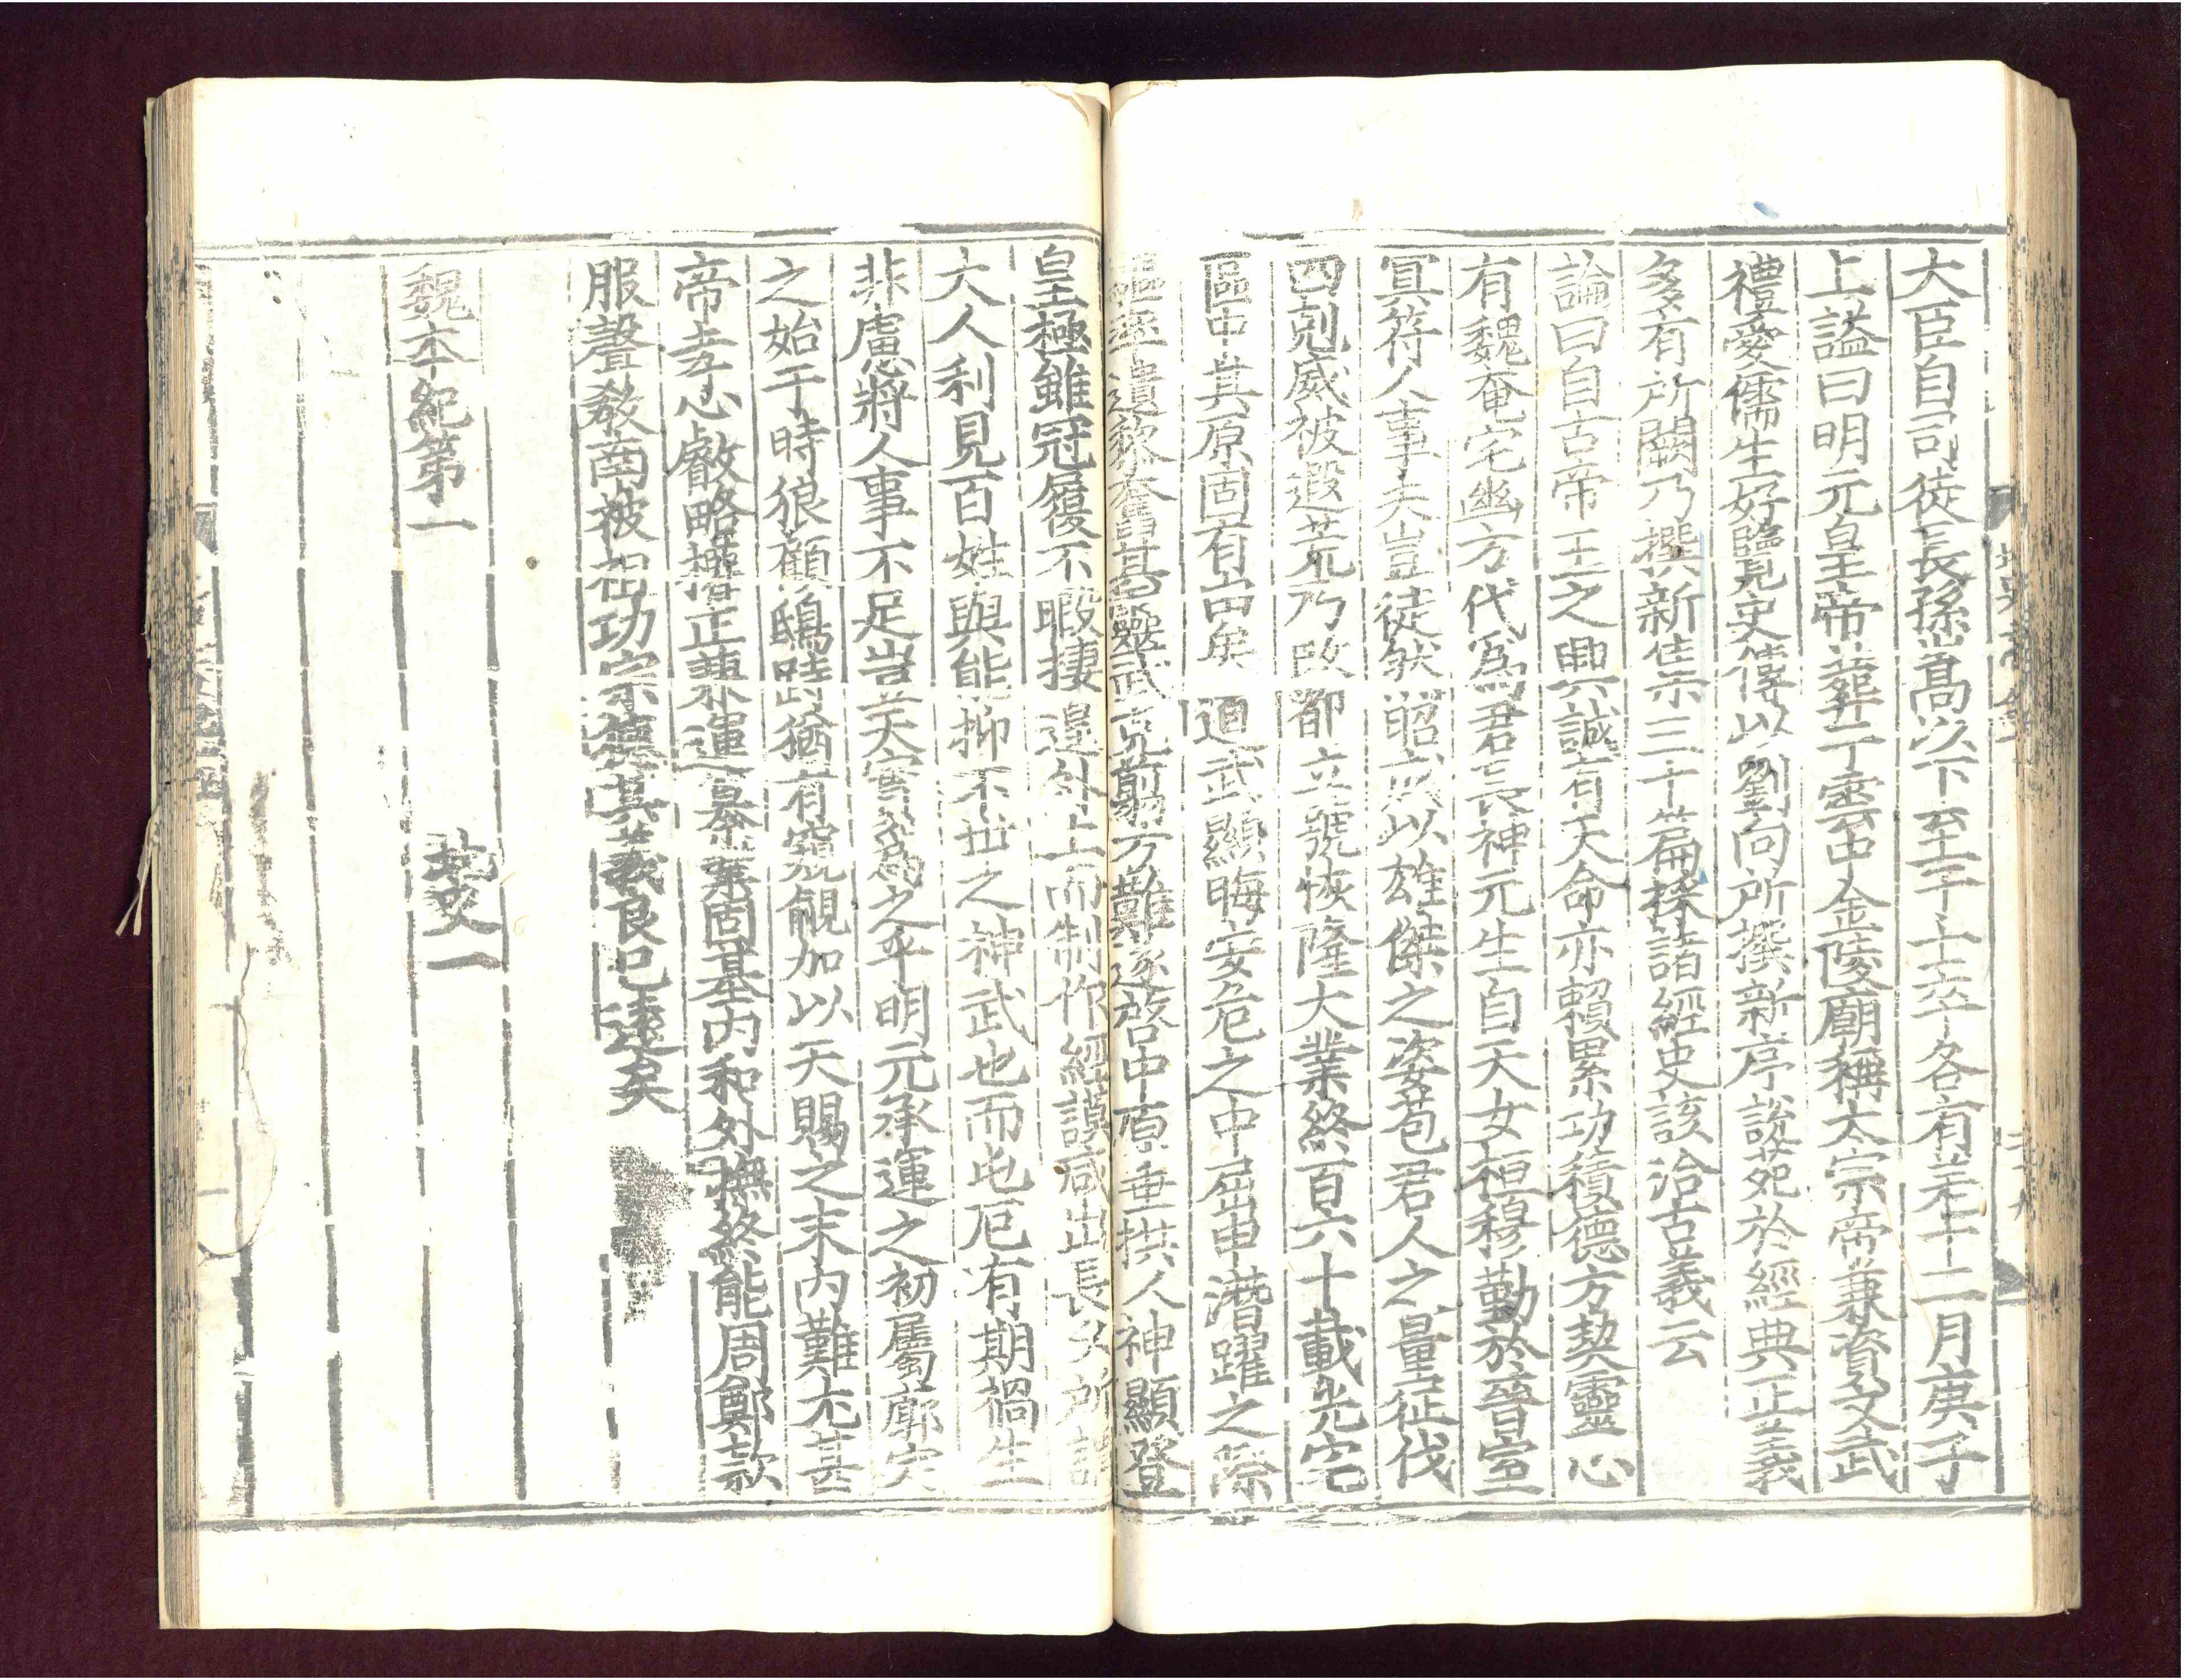 大臣自司徒長孫嵩以下至于士卒各有差十二月庚子
上諡曰明元皇帝葬于雲中金陵廟稱太宗帝兼資文武
禮愛儒生好覽史傳以劉向所撰新序說苑於經典正義
多有所闕乃撰新集三十篇採諸經史該洽古義云
論曰自古帝王之興誠有天命亦賴累功積德方契靈心
有魏奄宅幽方代爲君長神元生自天女桓穆勤於晉室
冥符人事夫豈徒然昭成以雄傑之姿苞君人之量征伐
四剋威被遐荒乃改都立號恢隆大業終百六十載光宅
區中其原固有由矣道武顯晦安危之中屈申潛躍之際
驅率遺黎奮其靈武克翦方難遂啓中原垂拱人神顯登
皇極雖冠履不暇棲遑外土而制作經謨咸出長久所謂
大人利見百姓與能抑不世之神武也而屯厄有期禍生
非慮將人事不足豈天實爲之乎明元承運之初屬廓定
之始于時狼顧鴟跱猶有窺覦加以天賜之末內難尤甚
帝孝心叡略權正兼運纂業固基內和外撫終能周鄭款
服聲教南被祖功宗德其義良已遠矣
魏本紀第一
北史一